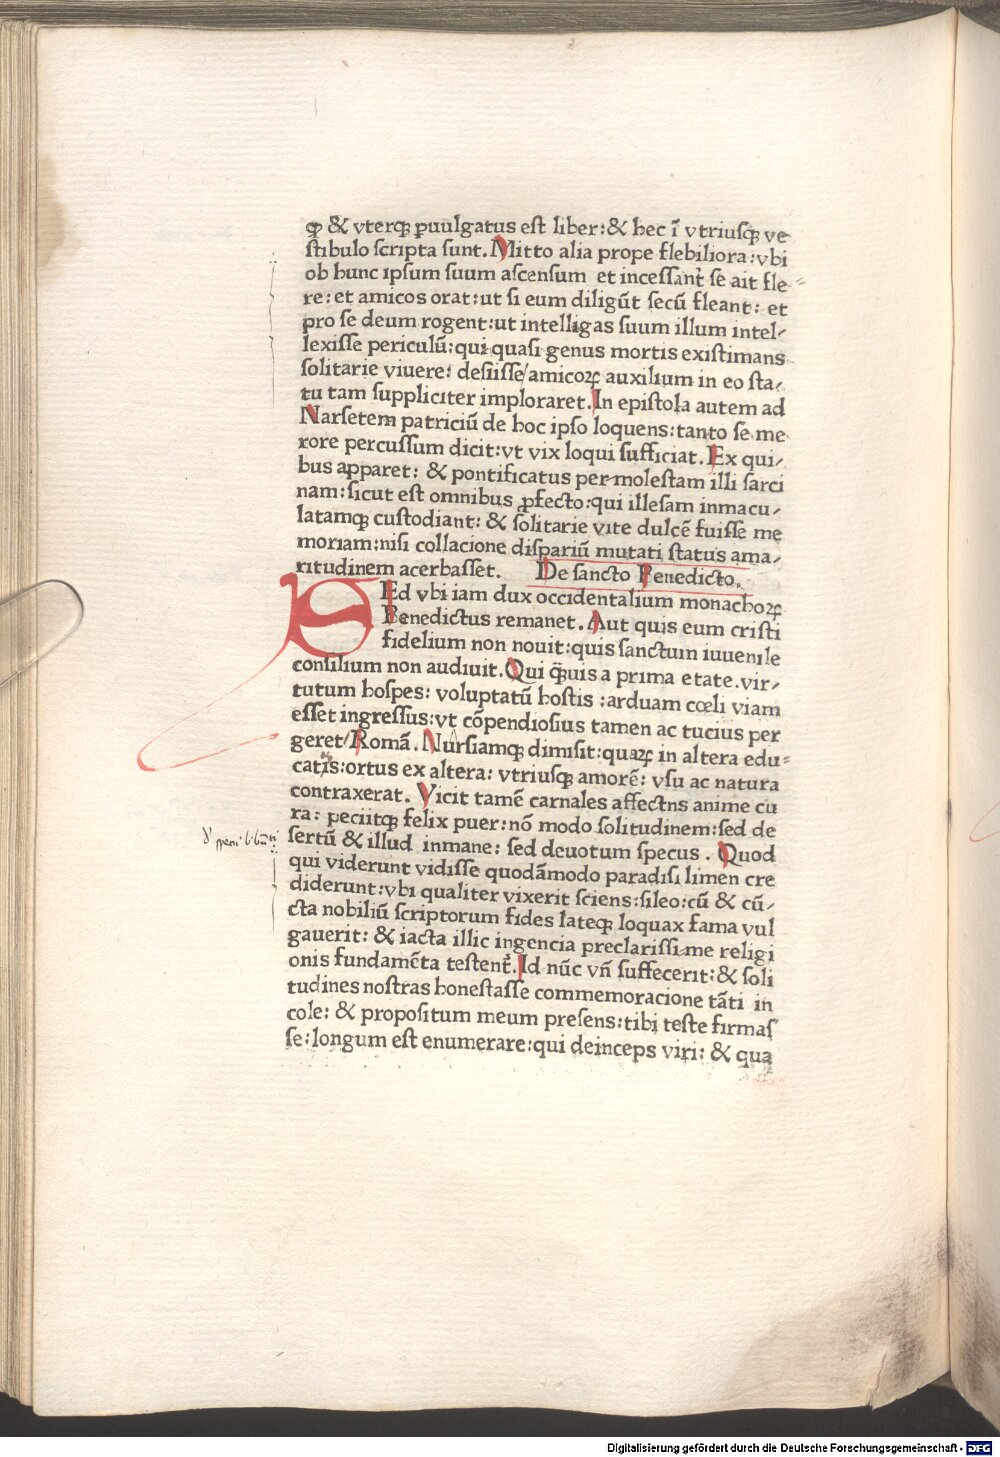 ꝙ & vterqꝫ ꝑuulgatus est liber:& hec ī vtriusqꝫ ve
stibulo scripta sunt. Mitto alia prope flebiliora:vbi
ob hunc ipsum suum ascensum et incessant᷑ se ait fle⸗
re: et amicos orat:ut si eum diligūt secū fleant: et
pro se deum rogent:ut intelligas suum illum intel⸗
lexisse periculū:qui quasi genus mortis existimans
solitarie viuere: desiisse/amicoꝝ auxilium in eo sta⸗
tu tam suppliciter imploraret. In epistola autem ad
Narsetem patriciū de hoc ipso loquens:tanto se me
rore percussum dicit:vt vix loqui sufficiat. Ex qui⸗
bus apparet: & pontificatus per molestam illi sarci
nam:sicut est omnibus ꝓfecto:qui illesam inmacu⸗
latamqꝫ custodiant: & solitarie vite dulcē fuisse me
moriam:nisi collacione dispariū mutati status ama⸗
ritudinem acerbasset. De sancto Benedicto.
SEd vbi iam dux occidentalium monachoꝝ
Benedictus remanet. Aut quis eum cristi
fidelium non nouit:quis sanctum iuuenile
consilium non audiuit. Qui q̄uis a prima etate.vir⸗
tutum hospes: voluptatū hostis :arduam cœli viam
esset ingressus:vt cōpendiosius tamen ac tucius per
geret/Romā. Nursiamqꝫ dimisit:quaꝝ in altera edu⸗
catis:ortus ex altera: vtriusqꝫ amorē: vsu ac natura
contraxerat. Vicit tamē carnales affectns anime cu
ra: peciitqꝫ felix puer:nō modo solitudinem:sed de
sertū & illud inmane: sed deuotum specus . Quod
qui viderunt vidisse quodāmodo paradisi limen cre
diderunt:vbi qualiter vixerit sciens:sileo:cū & cū⸗
cta nobiliū scriptorum fides lateqꝫ loquax fama vul
gauerit: & iacta illic ingencia preclarissime religi
onis fundamēta testent᷑. Id nūc vn̄ suffecerit:& soli
tudines nostras honestasse commemoracione tāti in
cole: & propositum meum presens:tibi teste firmas
se:longum est enumerare:qui deinceps viri: & qua
Digitalisierung gefördert durch die Deutsche Forschungsgemeinschaft - DFG